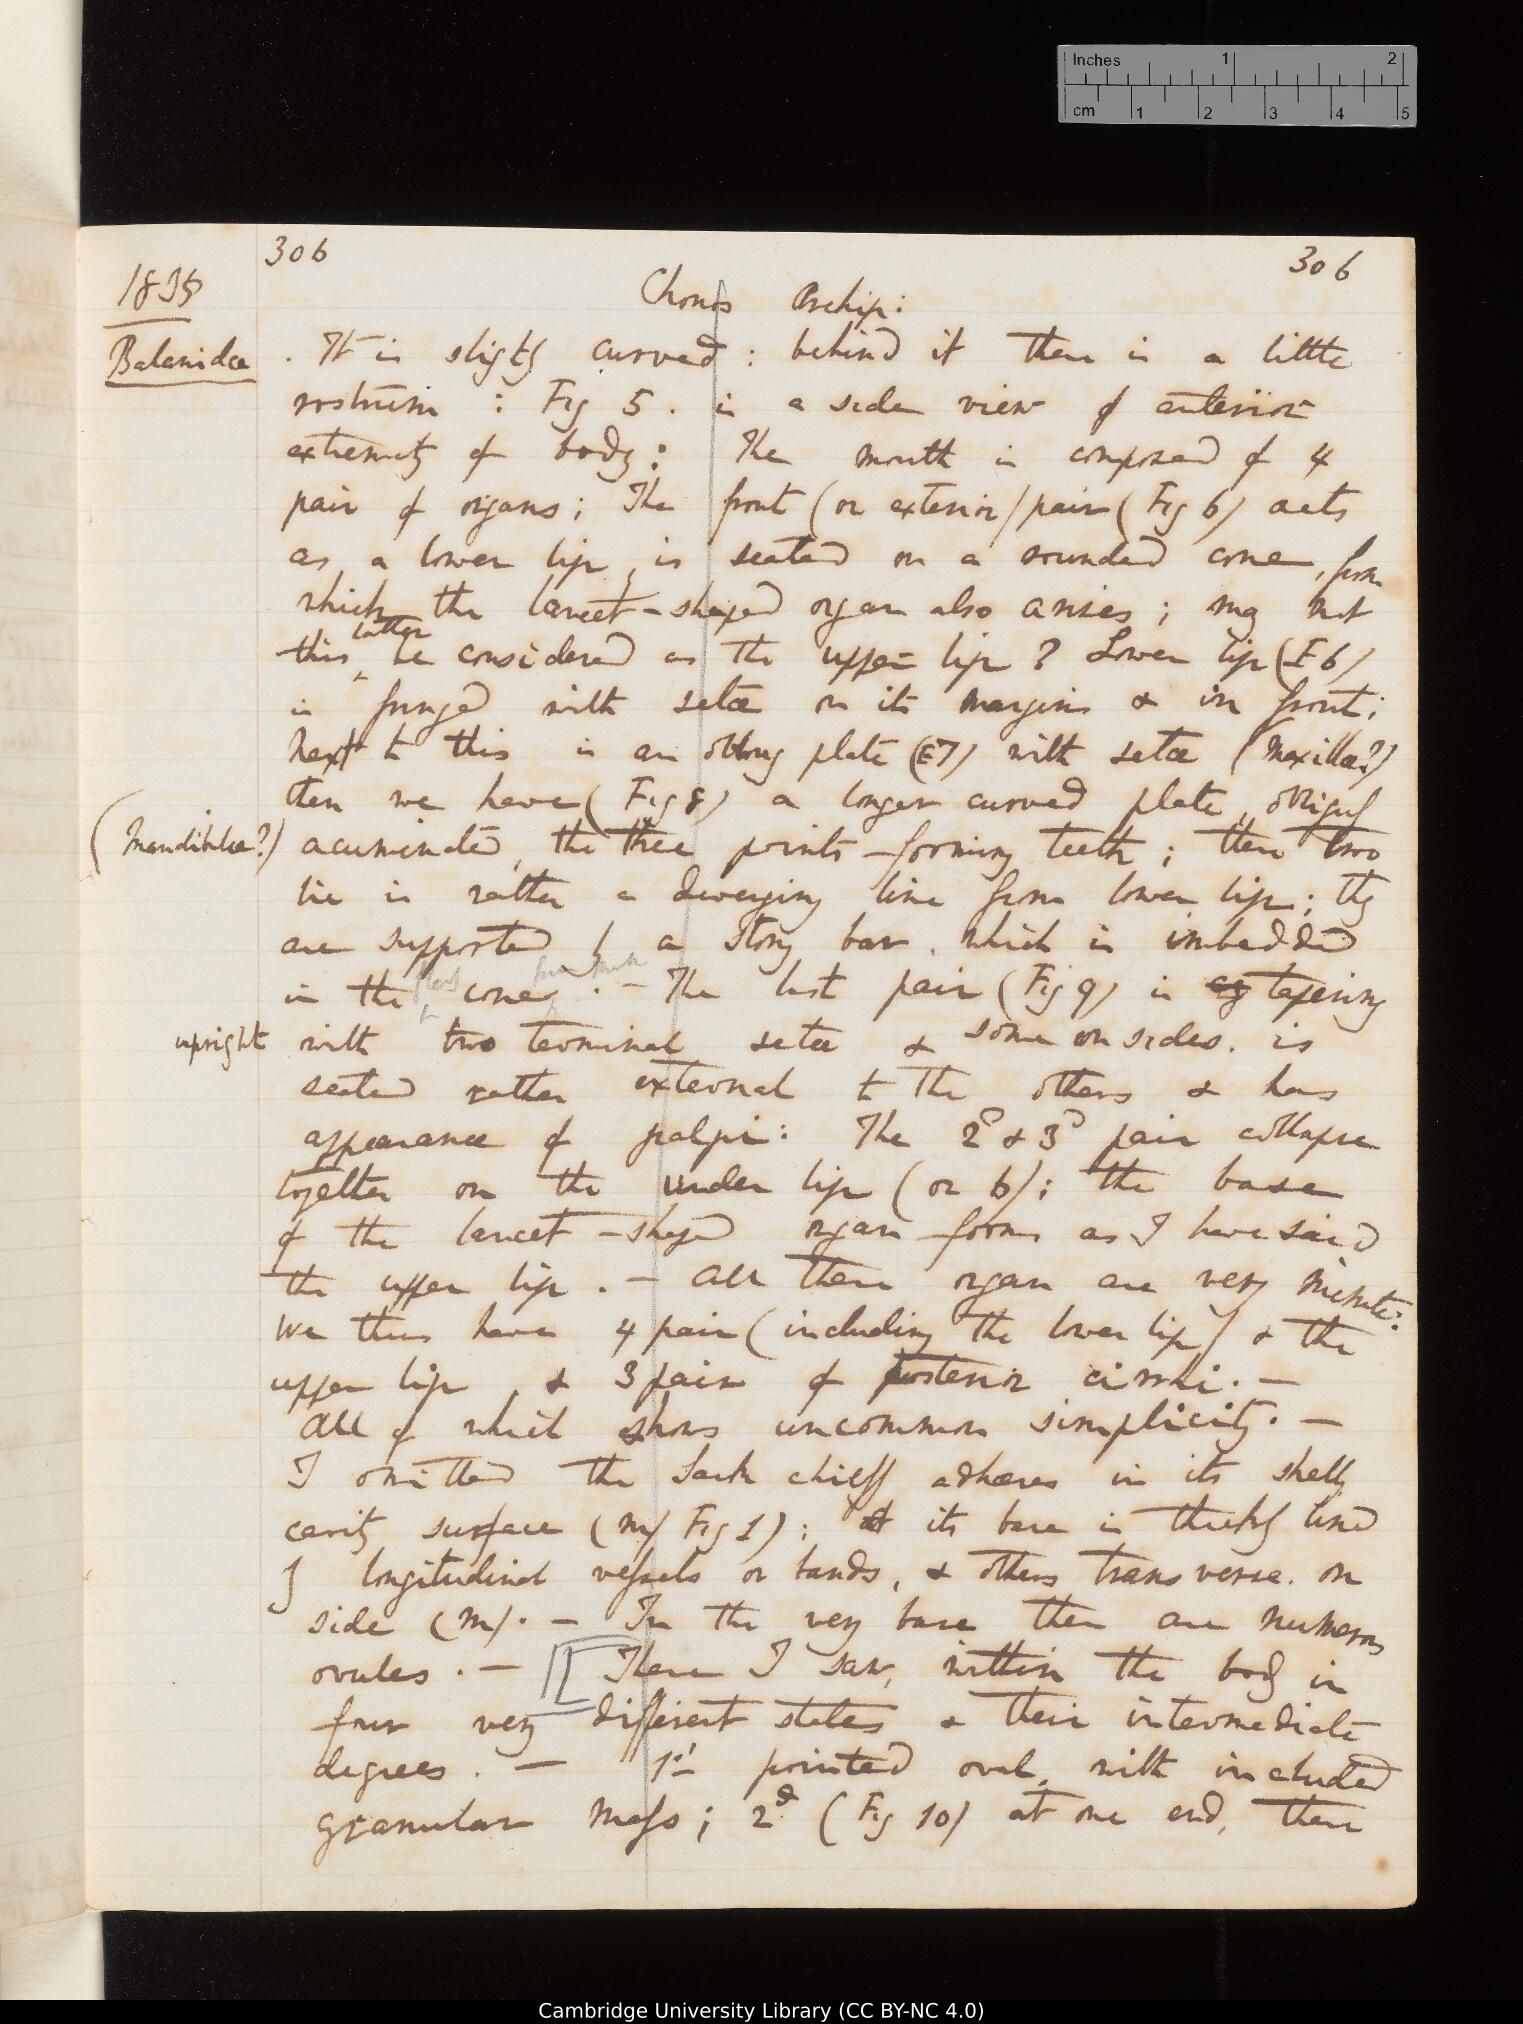 Inches 1 2
cm 1 2 3 4 5
306 306
1835
Chonos Archip:
Balanidæ
. It is slightly curved: behind it there is a little
rostrum: Fig 5. is a side view of anterior
extremity of body: The mouth is composed of 4
pair of organs; The front (or exterior) pair (Fig 6) acts
as a lower lip, is seated on a rounded cone, from
which the lancet-shaped organ also arises; may not
latter
this ^ be considered as the upper lip? Lower lip (F 6)
is fringed with setæ on its margins & in front;
next to this is an oblong plate (F 7) with setæ (Maxillæ?)
then we have (Fig 8) a longer curved plate, obliquely
(Mandibulæ?) acuminated, the three points forming teeth; these two
lie in rather a diverging line from lower lip; they
are supported by a strong bar, which is imbedded
in the cone. — The last pair (Fig 9) is tapering
upright with two terminal setæ & some on sides. is
seated rather external to the others & has
appearance of palpi: The 2d & 3d pair collapse
together on the under lip (or 6); the base
of the lancet-shaped organ forms as I have said
the upper lip. — All these organs are very minute:
We thus have 4 pair (including the lower lip) & the
upper lip, & 3 pair of posterior cirrhi. —
All of which shows uncommon simplicity. —
I omitted the Sack chiefly adheres in its shelly
cavity surface (m/ Fig 1); at its base is thickly lined
by longitudinal vessels or bands, & others transverse. on
side (m). — In the very base there are numerous
ovules. — [[ These I saw, within the body in
four very different states & their intermediate
degrees. — 1st pointed oval, with included
granular mass; 2d (Fig 10) at one end, there
Cambridge University Library (CC BY-NC 4.0)